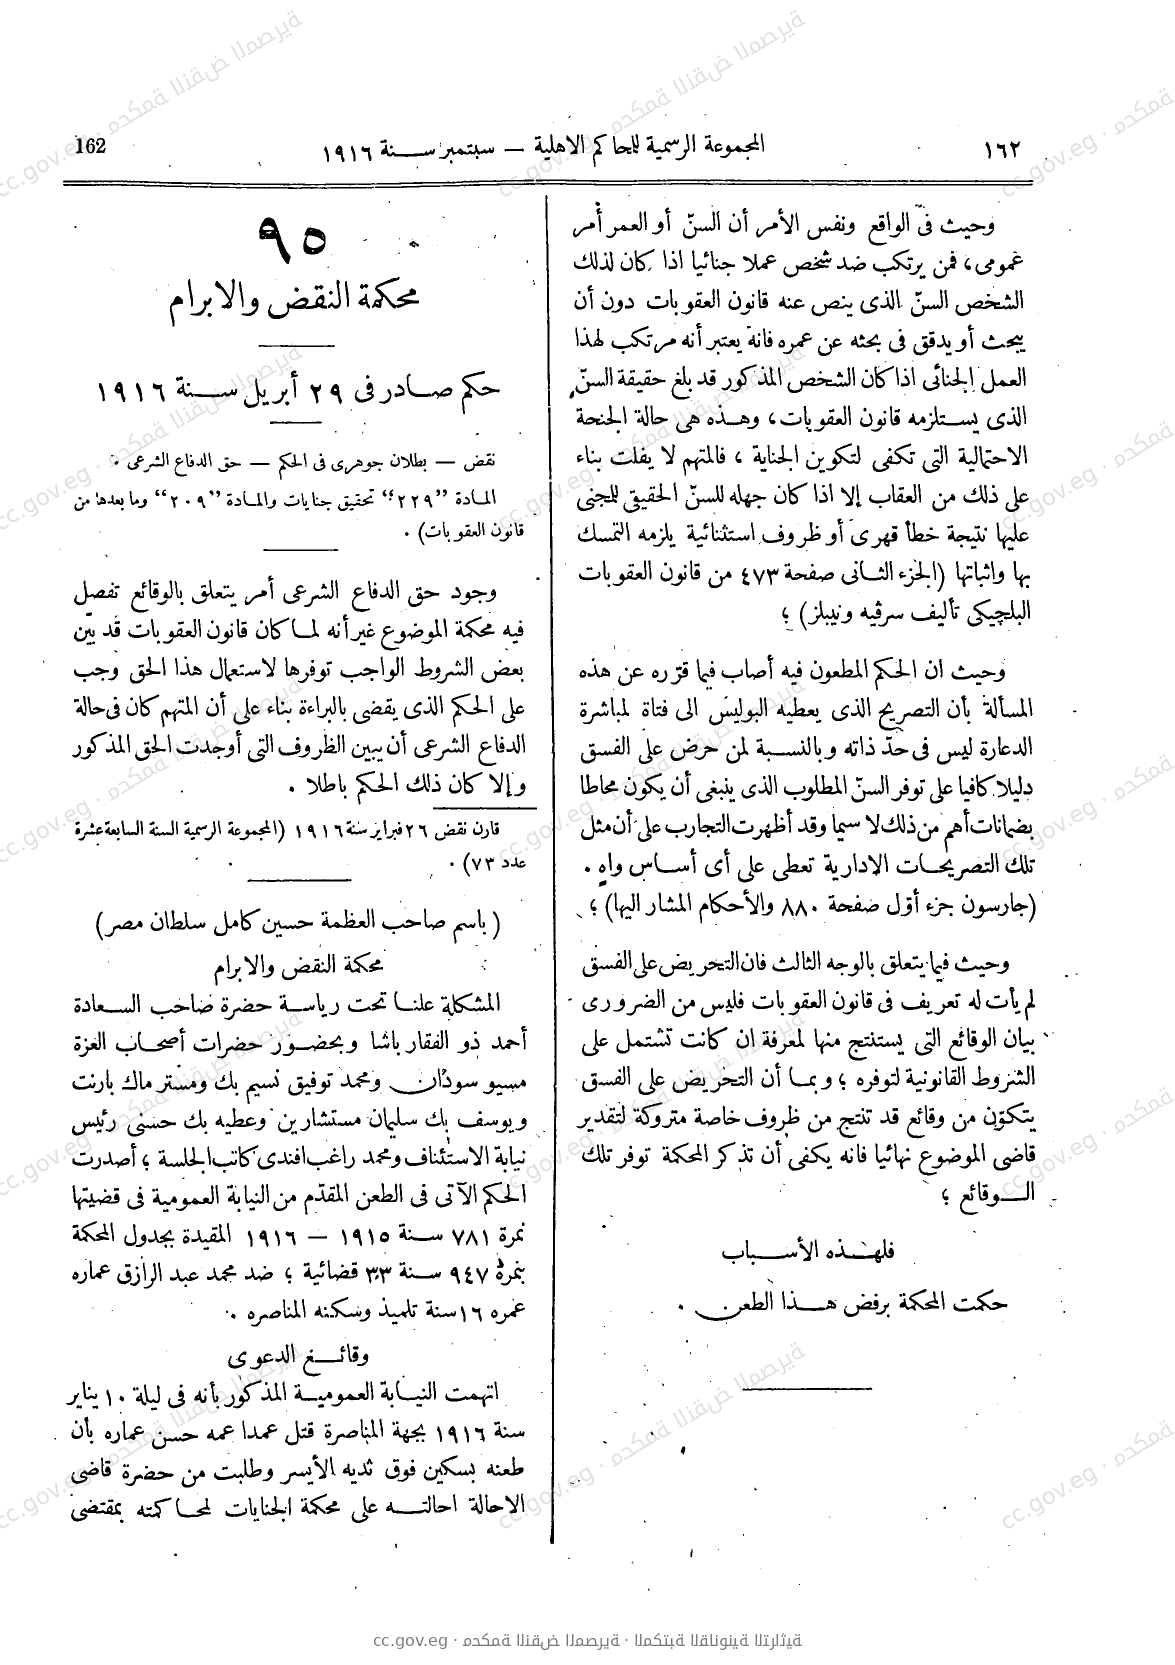 ١٦٢
المجموعة الرسمية للمحاكم الاهلية — سبتمبر سنة ١٩١٦
162
وحيث فى الواقع ونفس الأمر أن السنّ أو العمر أمر
عمومى، فمن يرتكب ضد شخص عملا جنائيا اذا كان لذلك
الشخص السنّ الذى ينص عنه قانون العقوبات دون أن
يبحث أو يدقق فى بحثه عن عمره فانه يعتبر أنه مرتكب لهذا
العمل الجنائى اذا كان الشخص المذكور قد بلغ حقيقة السنّ
الذى يستلزمه قانون العقوبات، وهذه هى حالة الجنحة
الاحتمالية التى تكفى لتكوين الجناية، فالمتهم لا يفلت بناء
على ذلك من العقاب إلا اذا كان جهله للسنّ الحقيقى للمجنى
عليها نتيجة خطأ قهرى أو ظروف استثنائية يلزمه التمسك
بها واثباتها (الجزء الثانى صفحة ٤٧٣ من قانون العقوبات
البلچيكى تأليف سرڤيه ونيبلز)؛
وحيث ان الحكم المطعون فيه أصاب فيما قرّره عن هذه
المسألة بأن التصريح الذى يعطيه البوليس الى فتاة لمباشرة
الدعارة ليس فى حدّ ذاته وبالنسبة لمن حرض على الفسق
دليلا كافيا على توفر السنّ المطلوب الذى ينبغى أن يكون محاطا
بضمانات أهم من ذلك لا سيما وقد أظهرت التجارب على أن مثل
تلك التصريحات الادارية تعطى على أى أساس واهٍ.
(جارسون جزء أوّل صفحة ٨٨٠ والأحكام المشار اليها)؛
وحيث فيما يتعلق بالوجه الثالث فان التحريض على الفسق
لم يأت له تعريف فى قانون العقوبات فليس من الضرورى
بيان الوقائع التى يستنتج منها لمعرفة ان كانت تشتمل على
الشروط القانونية لتوفره؛ وبما أن التحريض على الفسق
يتكوّن من وقائع قد تنتج من ظروف خاصة متروكة لتقدير
قاضى الموضوع نهائيا فانه يكفى أن تذكر المحكمة توفر تلك
الوقائع؛
فلهذه الأسباب
حكمت المحكمة برفض هذا الطعن.
٩٥
محكمة النقض والابرام
حكم صادر فى ٢٩ أبريل سنة ١٩١٦
نقض — بطلان جوهرى فى الحكم — حق الدفاع الشرعى.
المادة "٢٢٩" تحقيق جنايات والمادة "٢٠٩" وما بعدها من
قانون العقوبات).
وجود حق الدفاع الشرعى أمر يتعلق بالوقائع تفصل
فيه محكمة الموضوع غير أنه لما كان قانون العقوبات قد بيّن
بعض الشروط الواجب توفرها لاستعمال هذا الحق وجب
على الحكم الذى يقضى بالبراءة بناء على أن المتهم كان فى حالة
الدفاع الشرعى أن يبين الظروف التى أوجدت الحق المذكور
وإلا كان ذلك الحكم باطلا.
قارن نقض ٢٦ فبراير سنة ١٩١٦ (المجموعة الرسمية السنة السابعة عشرة
عدد ٧٣).
(باسم صاحب العظمة حسين كامل سلطان مصر)
محكمة النقض والابرام
المشكلة علنا تحت رياسة حضرة صاحب السعادة
أحمد ذو الفقار باشا وبحضور حضرات أصحاب العزة
مسيو سودان ومحمد توفيق نسيم بك ومستر ماك بارنت
ويوسف بك سليمان مستشارين وعطيه بك حسنى رئيس
نيابة الاستئناف ومحمد راغب افندى كاتب الجلسة؛ أصدرت
الحكم الآتى فى الطعن المقدّم من النيابة العمومية فى قضيتها
نمرة ٧٨١ سنة ١٩١٥ — ١٩١٦ المقيدة بجدول المحكمة
بنمرة ٩٤٧ سنة ٣٣ قضائية؛ ضد محمد عبد الرازق عماره
عمره ١٦ سنة تلميذ وسكنه المناصره.
وقائع الدعوى
اتهمت النيابة العمومية المذكور بأنه فى ليلة ١٠ يناير
سنة ١٩١٦ بجهة المناصرة قتل عمدا عمه حسن عماره بأن
طعنه بسكين فوق ثديه الأيسر وطلبت من حضرة قاضى
الاحالة احالته على محكمة الجنايات لمحاكمته بمقتضى
cc.gov.eg · محكمة النقض المصرية · المكتبة القانونية التراثية